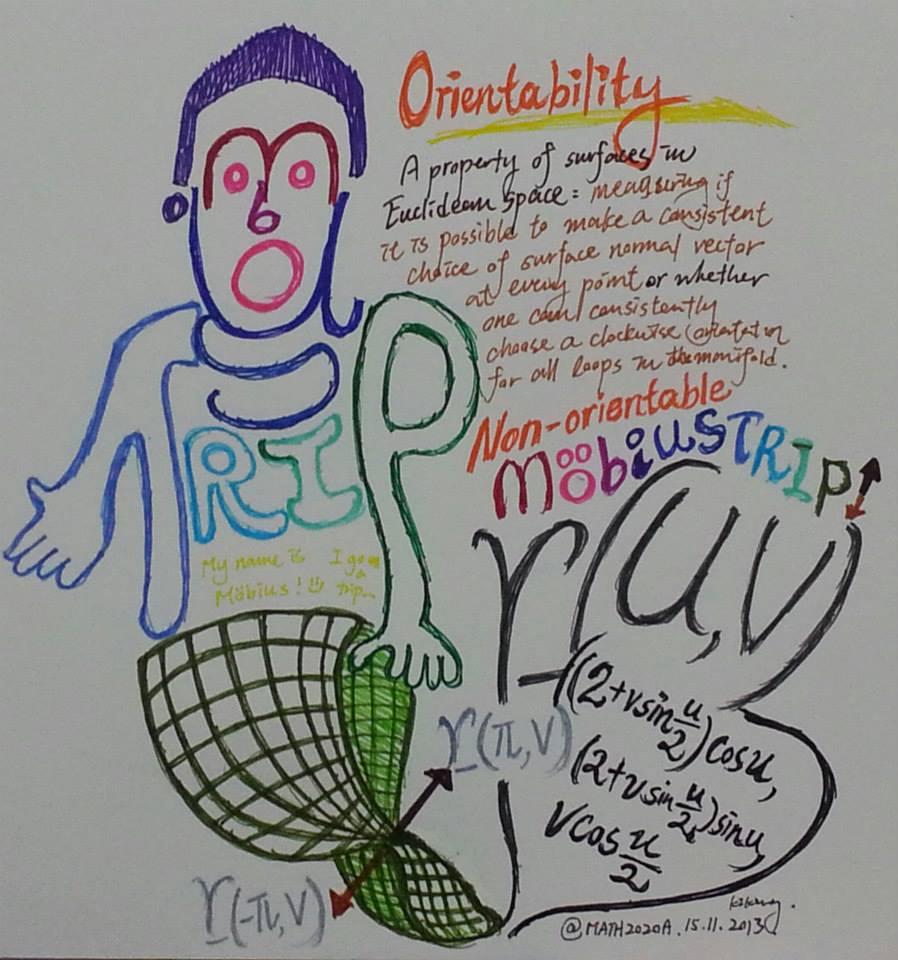 Orientability
A property of surfaces in
Euclidean space: measuring if
it is possible to make a consistent
choice of surface normal vector
at every point or whether
one can consistently
choose a clockwise orientation
for all loops in the manifold.
Non-orientable
MöbiusTRIP
TRIP
My name is
Möbius!
I go
a
trip
r(u,v)
((2+v sin u/2) cos u,
(2+v sin u/2) sin u,
v cos u/2
r(π,v)
r(-π,v)
@MATH2020A.15.11.2013